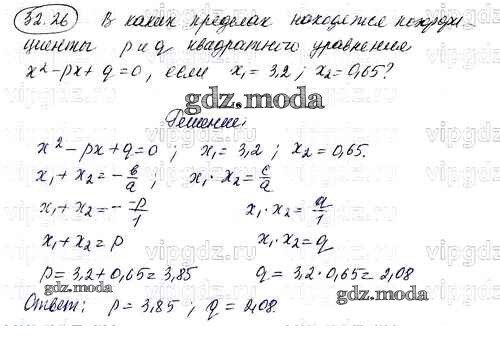 32.26 В каких пределах находятся коэффи-
циенты p и q квадратного уравнения
x² - px + q = 0, если x₁ = 3,2; x₂ = 0,65?
gdz.moda
Решение:
x² - px + q = 0; x₁ = 3,2; x₂ = 0,65.
x₁ + x₂ = - в/a; x₁ · x₂ = c/a
x₁ + x₂ = - -p/1 x₁ · x₂ = q/1
x₁ + x₂ = p x₁ · x₂ = q
p = 3,2 + 0,65 = 3,85 q = 3,2 · 0,65 = 2,08
gdz.moda gdz.moda
Ответ: p = 3,85; q = 2,08.